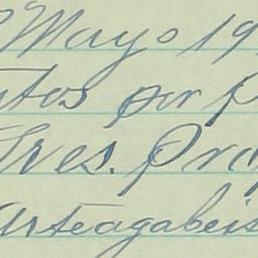 Mayo 19
tos por P
Sres. Pro
Arteagabeis